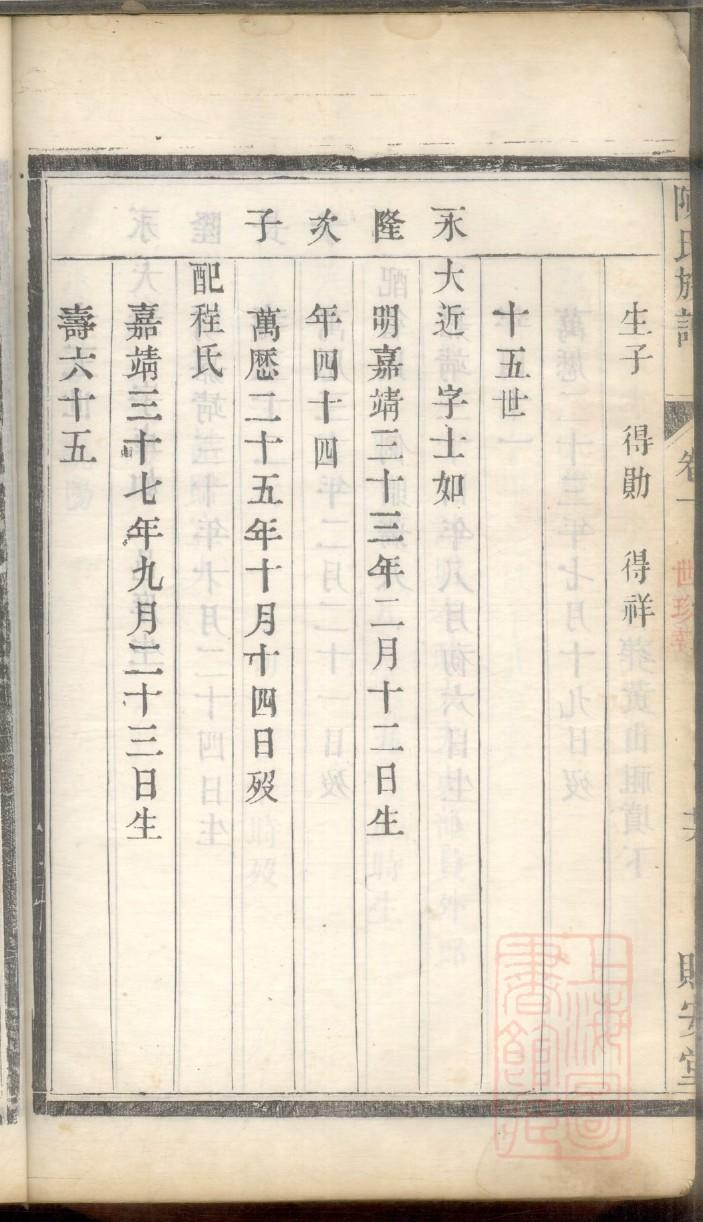 陳氏族譜
卷一
世珍藏
貽安堂
生子　得勛　得祥
十五世
永隆次子
大近　字士如
明嘉靖三十三年二月十二日生
年四十四
萬歷二十五年十月十四日歿
配程氏
嘉靖三十七年九月二十三日生
壽六十五
上海圖書館藏